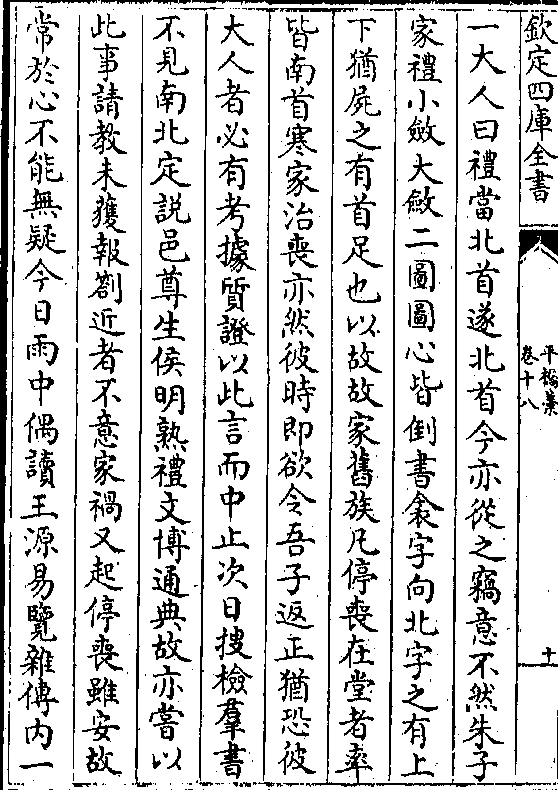 欽定四庫全書
平橋藁
卷十八
十
一大人曰禮當北首遂北首今亦從之竊意不然朱子
家禮小斂大斂二圖圖心皆倒書衾字向北字之有上
下猶屍之有首足也以故故家舊族凡停喪在堂者率
皆南首寒家治喪亦然彼時即欲令吾子返正猶恐彼
大人者必有考據質證以此言而中止次日搜檢羣書
不見南北定説邑尊生侯明熟禮文博通典故亦嘗以
此事請教未獲報劄近者不意家禍又起停喪雖安故
常於心不能無疑今日雨中偶讀王源易覽雜傳内一